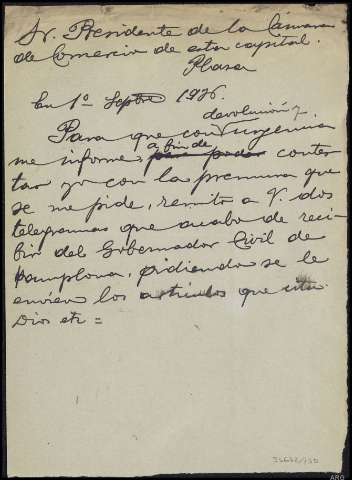 Sr. Presidente de la Cámara
de Comercio de esta capital.
Plaza
En 1º Septre 1936.
devolución y
Para que con urgencia
me informe a fin de para poder contes
tar yo con la premura que
se me pide, remito a V. dos
telegramas que acabo de reci-
bir del Gobernador Civil de
Pamplona, pidiendo se le
envien los artículos que
Dios etc =